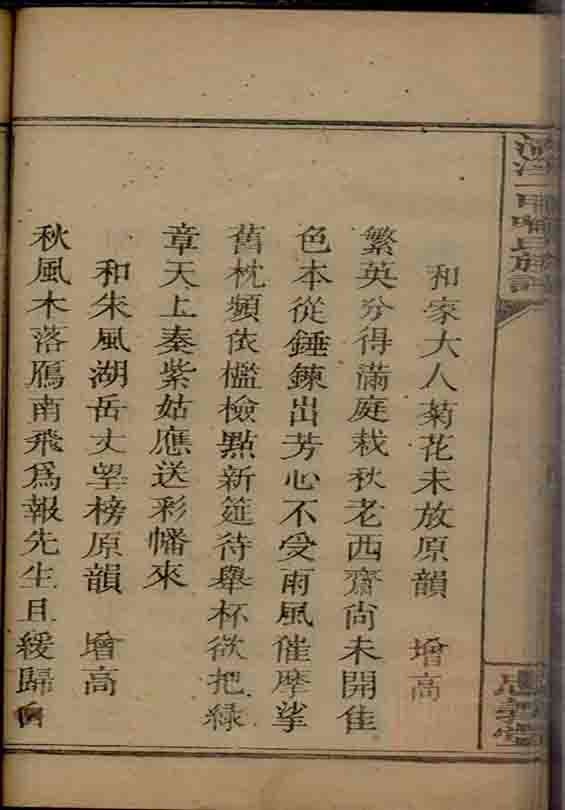 和家大人菊花未放原韻　增高
繁英分得滿庭栽秋老西齋尚未開佳
色本從錘鍊出芳心不受雨風催摩挲
舊枕頻依檻檢點新筵待舉杯欲把綠
章天上奏紫姑應送彩幡來
和朱風湖岳丈望榜原韻　增高
秋風木落鴈南飛爲報先生且緩歸